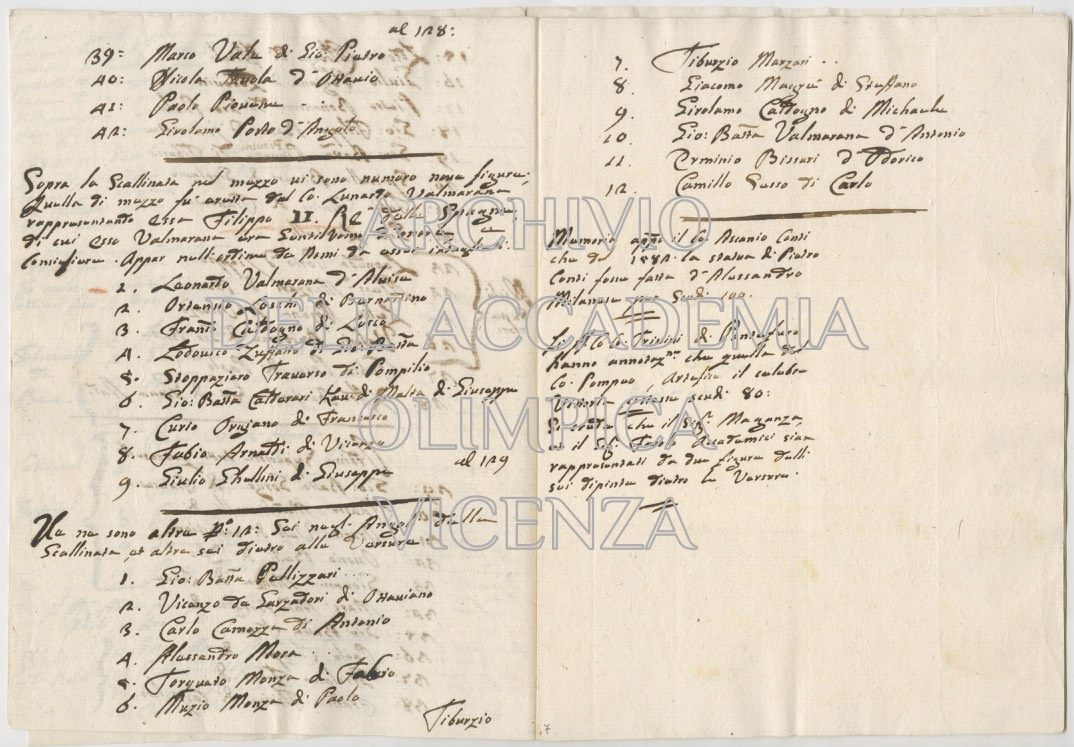 al 128:
39: Marco Vale di Gio: Pietro
40: Nicola Tavola d'Ottavio
41: Paolo Piovene ...
42: Girolamo Porto d'Angelo
Sopra la Scallinata nel mezzo vi sono numero nove figure:
Quella di mezzo fu eretta dal Co. Lunardo Valmarana
rappresentante essa Filippo II. Re delle Spagne,
di cui esso Valmarana era Gentil'Uomo d'onore e
Consigliere. Appar nell'ordine da Nomi da esser
1. Leonardo Valmarana d'Aluise
2. Ortensio Loschi di Bernardino
3. Franc.o Caldogno di Losco
4. Lodovico di Gio: Batta
5. Stoppaziero Traverso di Pompilio
6. Gio: Batta Calderari Kau: di Malta di Giuseppe
7. Curio Orgiano di Francesco
8. Fabio Arnaldi di Vicenzo
9. Giulio Ghellini di Giuseppe
al 129
Ve ne sono altre p.o 12: Sei negl'Angoli della
Scallinata, et altre sei dietro alla Versura.
1. Gio: Batta Pellizzari ...
2. Vicenzo da Garzadori di Ottaviano
3. Carlo Camozza di Antonio
4. Alessandro Mora ...
5. Torquato Monza di Fabio
6. Muzio Monza di Paolo
Tiburzio
7. Tiburzio Marzari ..
8. Giacomo Magrè di Steffano
9. Girolamo Caldogno di Michaele
10. Gio: Batta Valmarana d'Antonio
11. Erminio Bissari d'Odorico
12. Camillo Gusso di Carlo
Memoria app.o il Co. Ascanio Conti
che de 1582. la statua di Pietro
Conti fosse fatta d'Alessandro
Milanese per Scudi 100.
Co: Co: Trissini di
hanno che quella del
Co. Pompeo, Artefice il celebre
Vittoria scudi 80:
Si crede che il Sig.r Maganza,
et il Sig.r Fasolo Accademici sian
rappresentati da due figure delli
sei dipinte dietro le Versure.
7
ARCHIVIO
DELL'ACCADEMIA
OLIMPICA
VICENZA